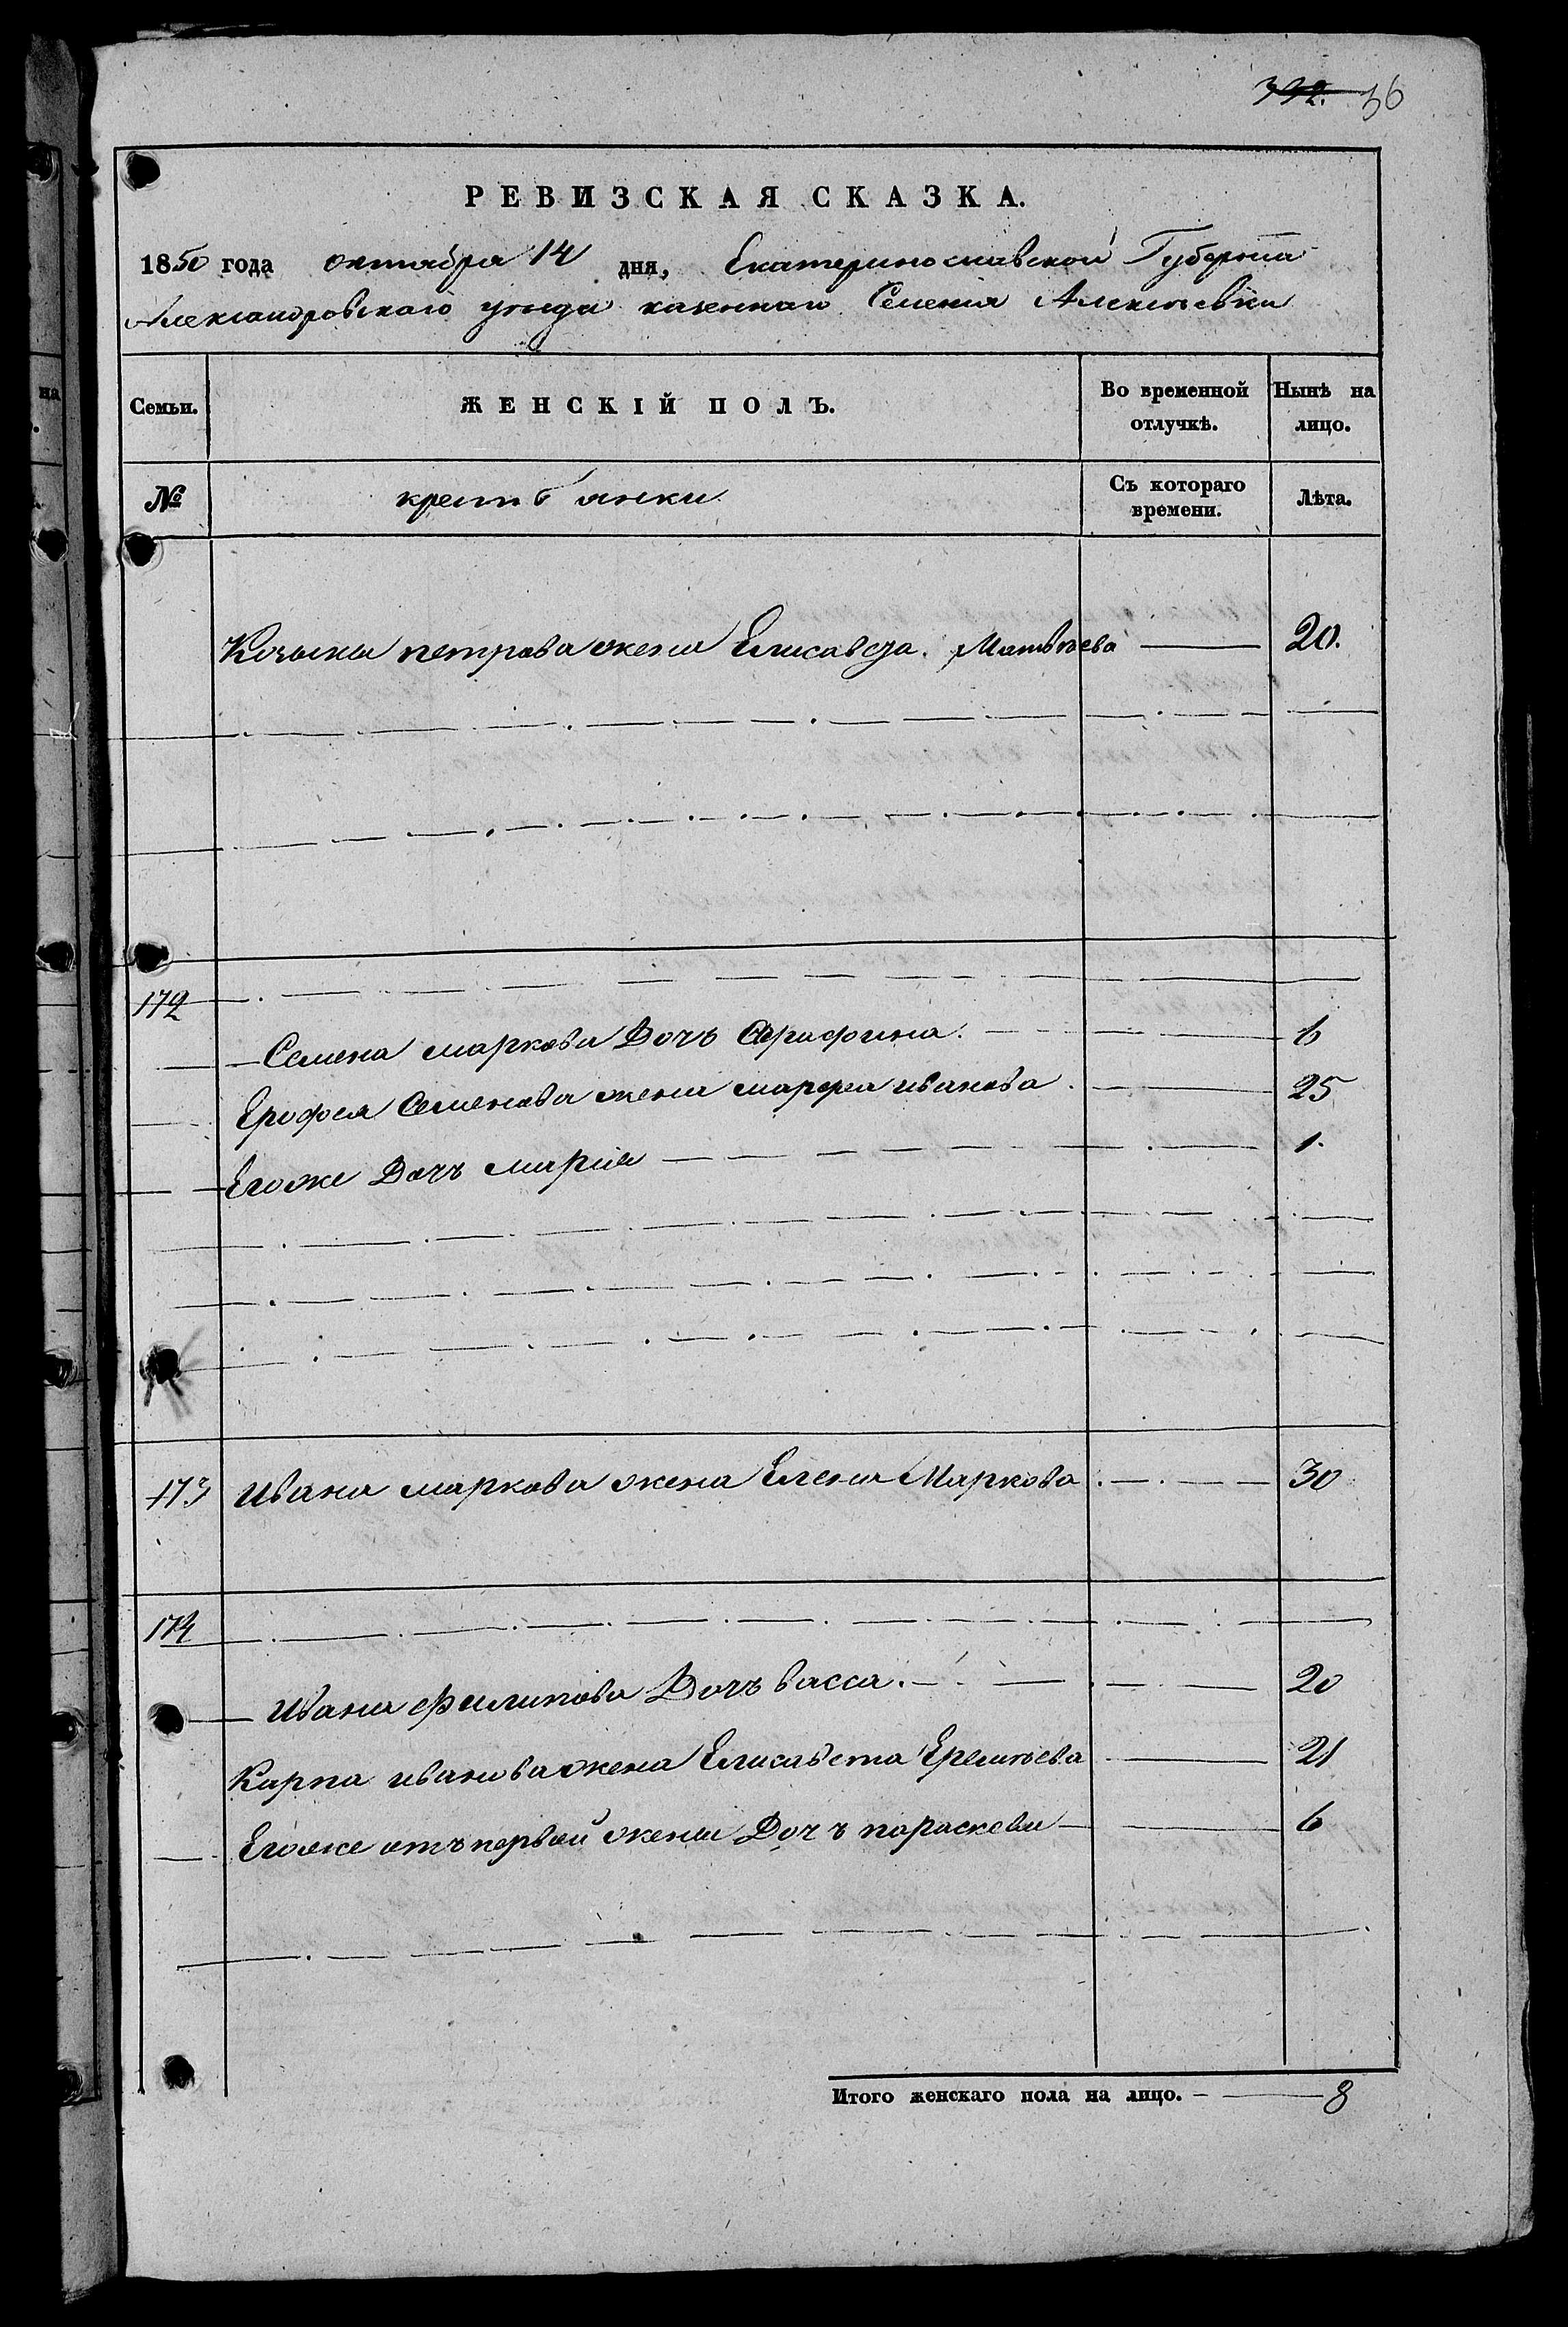 392. 36
РЕВИЗСКАЯ СКАЗКА.
1850 года октября 14 дня, Екатеринославской Губерніи
Александровскаго уѣзда казеннаго Селенія Алексѣевки
Семьи. ЖЕНСКІЙ ПОЛЪ. Во временной отлучкѣ. Нынѣ на лицо.
№ крестьянки Съ котораго времени. Лѣта.
Козьмы петрова жена Елисавета Матвѣева 20.
172
Семена маркова Дочь Серафима 6
Ерофея Семенова жена марфа иванова 25
Егоже Дочь марія 1.
173 Ивана маркова жена Елена Маркова 30
174
Ивана филипова Дочь васса. 20
Карпа иванова жена Елисавета Еремѣева 21
Егоже отъ первой жены Дочь параскева 6
Итого женскаго пола на лицо. 8
на